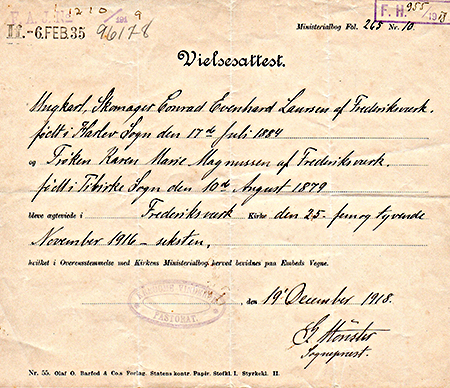 1210
F. H. 955/1918
-6. FEB. 35
96178
Ministerialbog Fol. 265 Nr. 10.
Vielsesattest.
Ungkarl, Skomager Conrad Evenhard Laursen af Frederiksværk.
født i Harlev Sogn den 17de Juli 1884
og Frøken Karen Marie Magnussen af Frederiksværk.
født i Tibirke Sogn den 10de August 1879
bleve ægteviede i Frederiksværk Kirke den 25- fem og tyvende
November 1916 - seksten,
hvilket i Overensstemmelse med Kirkens Ministerialbog herved bevidnes paa Embeds Vegne.
, den 19' December 1918.
PASTORAT.
Sognepræst.
Nr. 55. Olaf O. Barfod & Co.s Forlag. Statens kontr. Papir. Stofkl. I. Styrkekl. II.